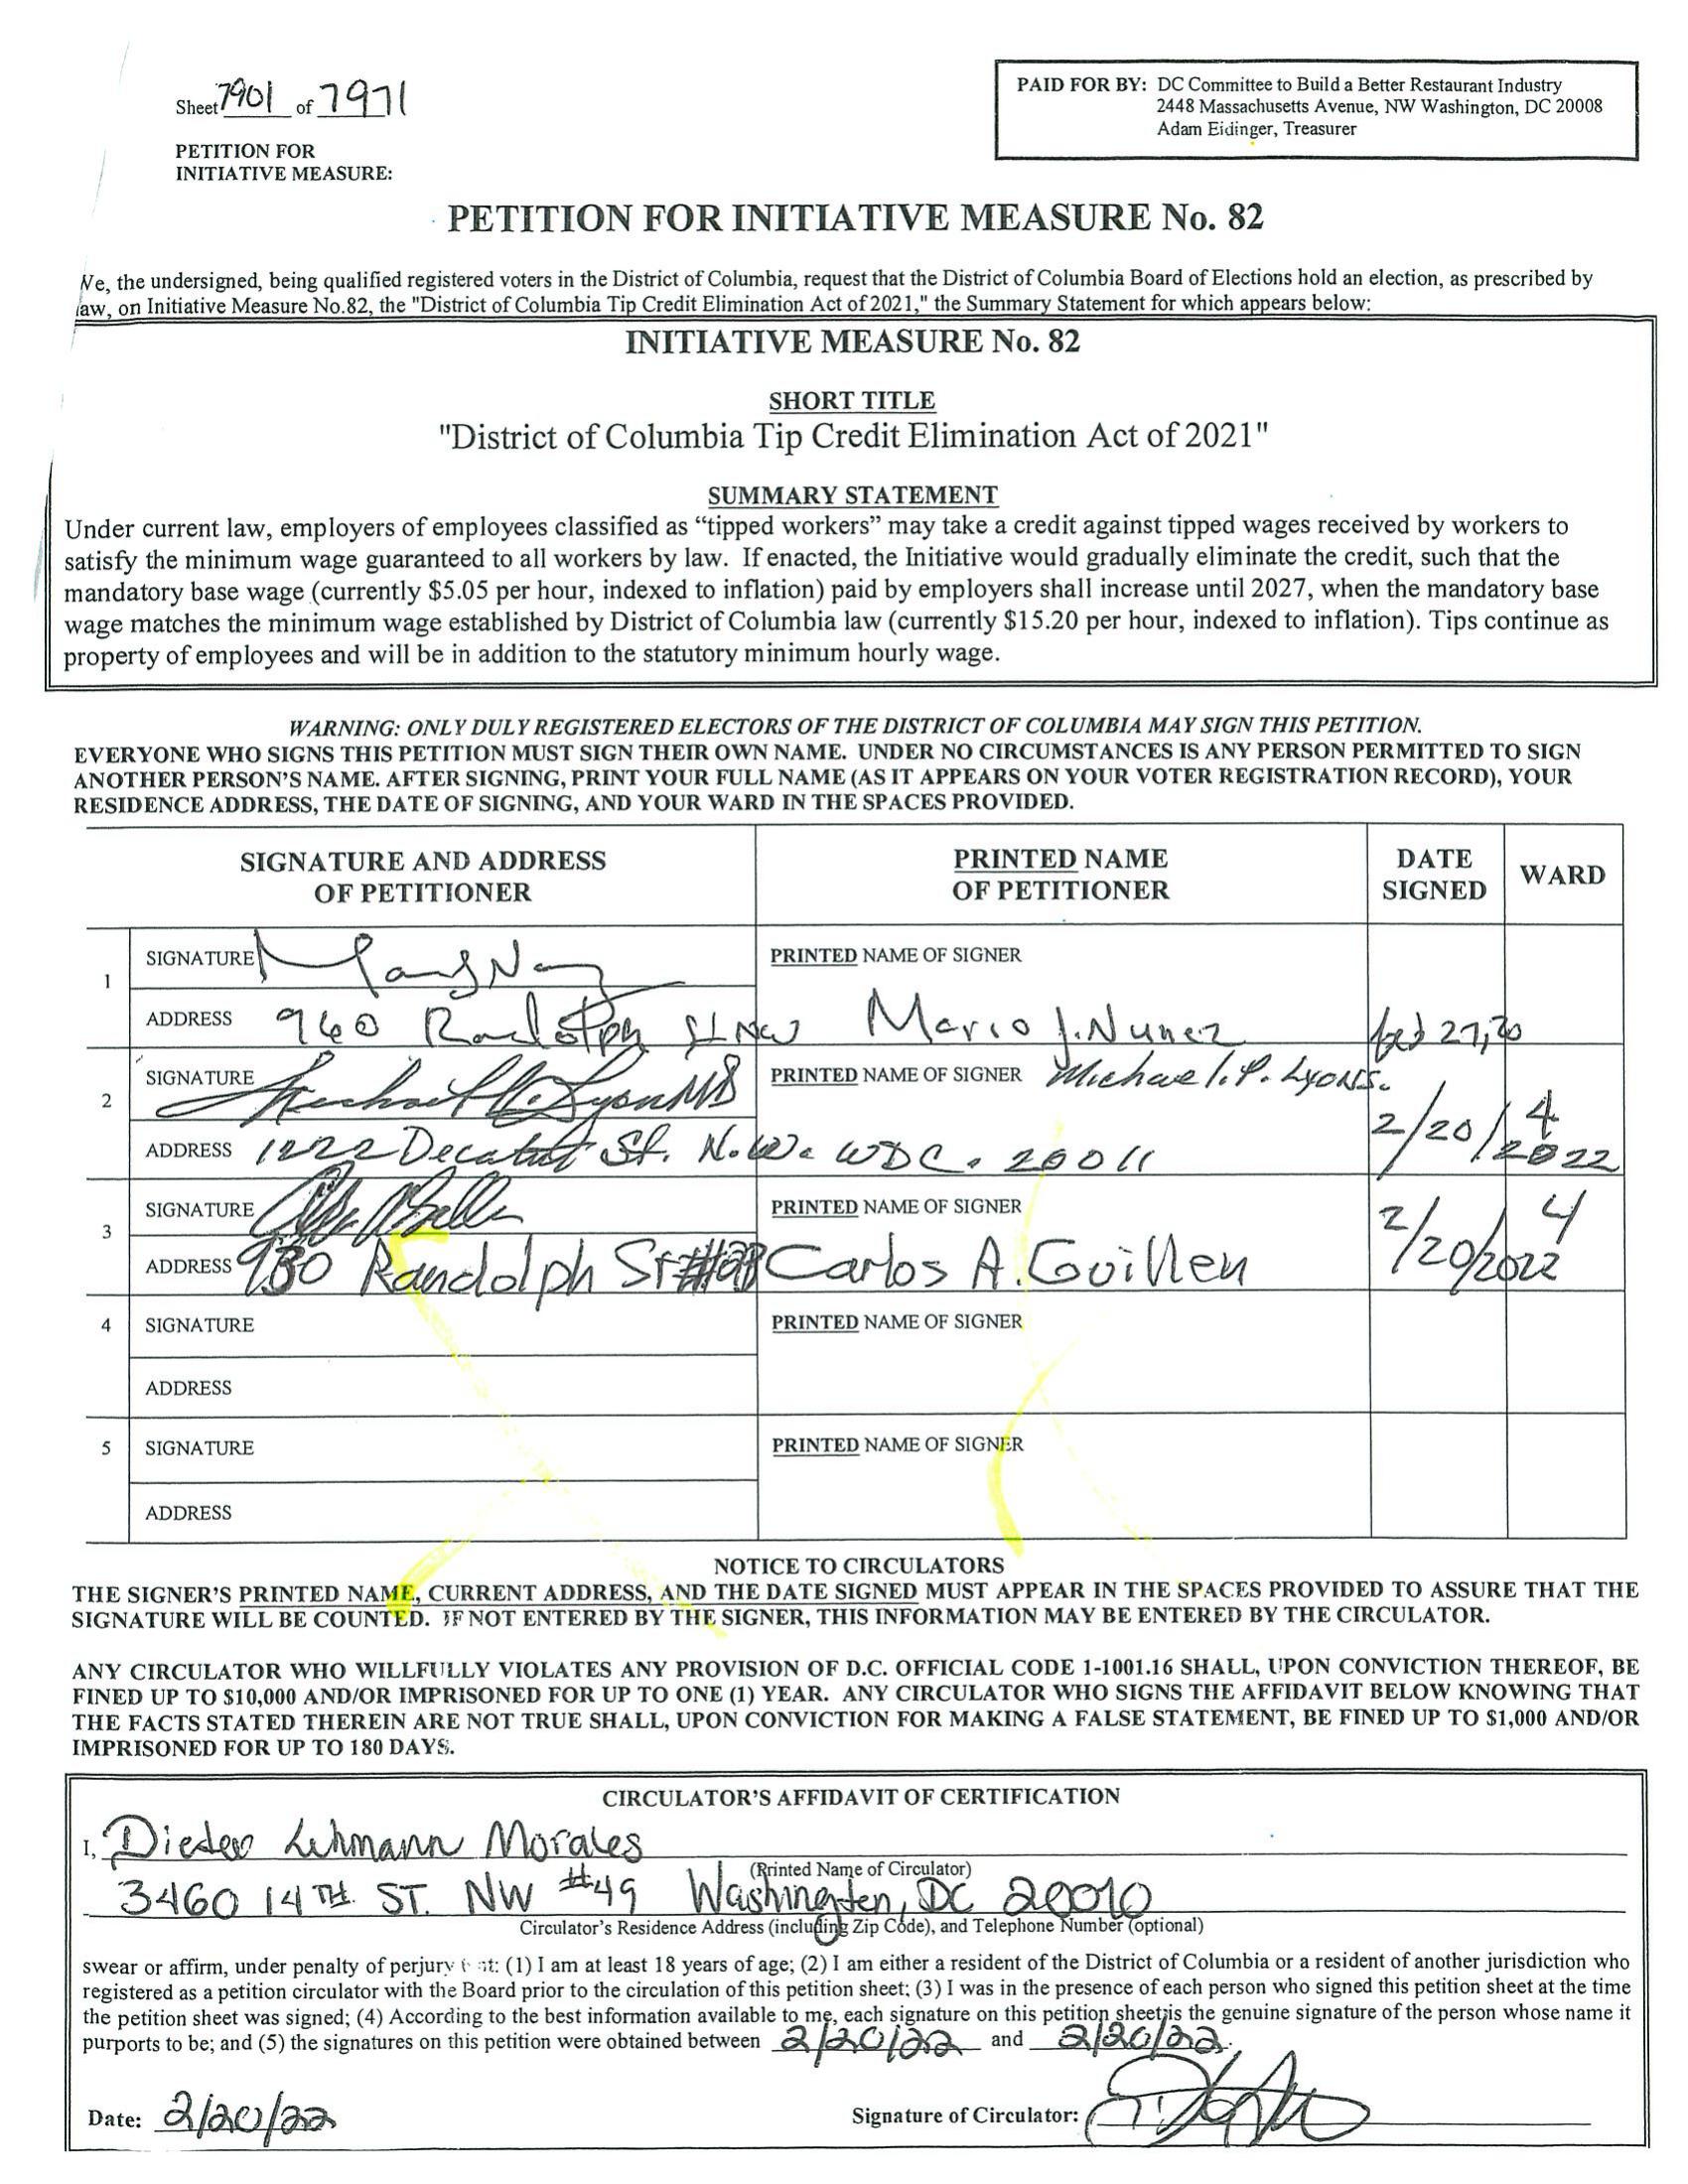 Sheet 7901 of 7971
PAID FOR BY: DC Committee to Build a Better Restaurant Industry
2448 Massachusetts Avenue, NW Washington, DC 20008
Adam Eidinger, Treasurer
PETITION FOR
INITIATIVE MEASURE:
PETITION FOR INITIATIVE MEASURE No. 82
We, the undersigned, being qualified registered voters in the District of Columbia, request that the District of Columbia Board of Elections hold an election, as prescribed by
law, on Initiative Measure No.82, the "District of Columbia Tip Credit Elimination Act of 2021," the Summary Statement for which appears below:
INITIATIVE MEASURE No. 82
SHORT TITLE
"District of Columbia Tip Credit Elimination Act of 2021"
SUMMARY STATEMENT
Under current law, employers of employees classified as “tipped workers” may take a credit against tipped wages received by workers to
satisfy the minimum wage guaranteed to all workers by law. If enacted, the Initiative would gradually eliminate the credit, such that the
mandatory base wage (currently $5.05 per hour, indexed to inflation) paid by employers shall increase until 2027, when the mandatory base
wage matches the minimum wage established by District of Columbia law (currently $15.20 per hour, indexed to inflation). Tips continue as
property of employees and will be in addition to the statutory minimum hourly wage.
WARNING: ONLY DULY REGISTERED ELECTORS OF THE DISTRICT OF COLUMBIA MAY SIGN THIS PETITION.
EVERYONE WHO SIGNS THIS PETITION MUST SIGN THEIR OWN NAME. UNDER NO CIRCUMSTANCES IS ANY PERSON PERMITTED TO SIGN
ANOTHER PERSON'S NAME. AFTER SIGNING, PRINT YOUR FULL NAME (AS IT APPEARS ON YOUR VOTER REGISTRATION RECORD), YOUR
RESIDENCE ADDRESS, THE DATE OF SIGNING, AND YOUR WARD IN THE SPACES PROVIDED.
SIGNATURE AND ADDRESS OF PETITIONER
PRINTED NAME OF PETITIONER
DATE SIGNED
WARD
1 SIGNATURE PRINTED NAME OF SIGNER
ADDRESS 960 Randolph St NW Mario J. Nunez
2 SIGNATURE PRINTED NAME OF SIGNER Michael. P. Lyons.
ADDRESS 1222 Decatur St. N.W. WDC. 20011 2/20/2022 4
3 SIGNATURE PRINTED NAME OF SIGNER
ADDRESS 930 Randolph St Carlos A. Guillen 2/20/2022 4
4 SIGNATURE PRINTED NAME OF SIGNER
ADDRESS
5 SIGNATURE PRINTED NAME OF SIGNER
ADDRESS
NOTICE TO CIRCULATORS
THE SIGNER'S PRINTED NAME, CURRENT ADDRESS, AND THE DATE SIGNED MUST APPEAR IN THE SPACES PROVIDED TO ASSURE THAT THE
SIGNATURE WILL BE COUNTED. IF NOT ENTERED BY THE SIGNER, THIS INFORMATION MAY BE ENTERED BY THE CIRCULATOR.
ANY CIRCULATOR WHO WILLFULLY VIOLATES ANY PROVISION OF D.C. OFFICIAL CODE 1-1001.16 SHALL, UPON CONVICTION THEREOF, BE
FINED UP TO $10,000 AND/OR IMPRISONED FOR UP TO ONE (1) YEAR. ANY CIRCULATOR WHO SIGNS THE AFFIDAVIT BELOW KNOWING THAT
THE FACTS STATED THEREIN ARE NOT TRUE SHALL, UPON CONVICTION FOR MAKING A FALSE STATEMENT, BE FINED UP TO $1,000 AND/OR
IMPRISONED FOR UP TO 180 DAYS.
CIRCULATOR'S AFFIDAVIT OF CERTIFICATION
I, Lehmann Morales
(Printed Name of Circulator)
3460 14TH ST. NW #49 Washington, DC 20010
Circulator's Residence Address (including Zip Code), and Telephone Number (optional)
swear or affirm, under penalty of perjury that: (1) I am at least 18 years of age; (2) I am either a resident of the District of Columbia or a resident of another jurisdiction who
registered as a petition circulator with the Board prior to the circulation of this petition sheet; (3) I was in the presence of each person who signed this petition sheet at the time
the petition sheet was signed; (4) According to the best information available to me, each signature on this petition sheet is the genuine signature of the person whose name it
purports to be; and (5) the signatures on this petition were obtained between 2/20/22 and 2/20/22.
Date: 2/20/22 Signature of Circulator: